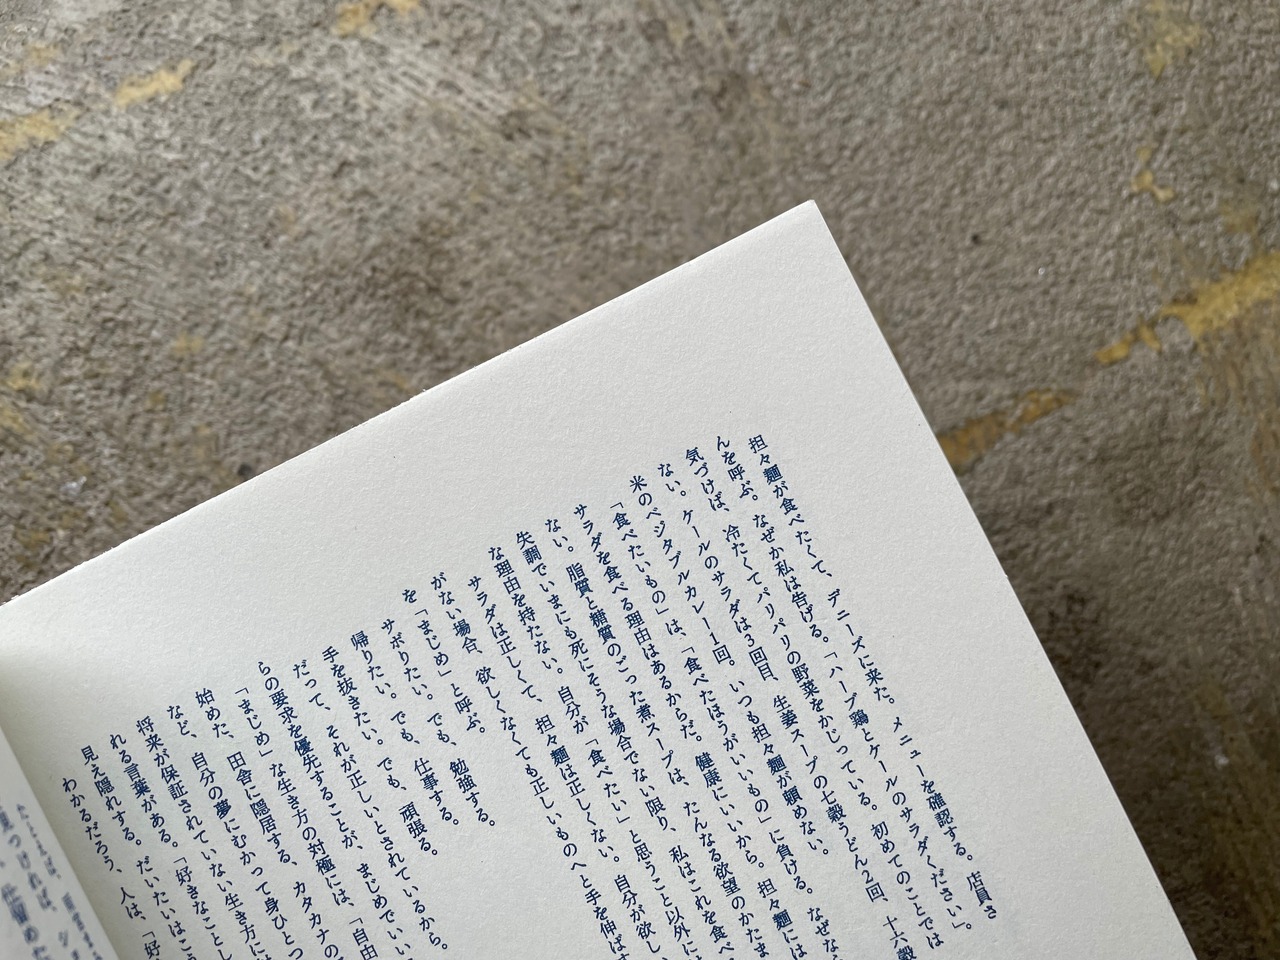 担々麺が食べたくて、デニーズに来た。メニューを確認する。店員さ
んを呼ぶ。なぜか私は告げる。「ハーブ鶏とケールのサラダください」。
気づけば、冷たくてパリパリの野菜をかじっている。初めてのことでは
ない。ケールのサラダは3回目、生姜スープの七穀うどん2回、十六穀
米のベジタブルカレー1回。いつも担々麺が頼めない。
「食べたいもの」は、「食べたほうがいいもの」に負ける。なぜなら
サラダを食べる理由はあるからだ。健康にいいから。担々麺には
ない。脂質と糖質のごった煮スープは、たんなる欲望のかたま
失調でいまにも死にそうな場合でない限り、私はこれを食べ
な理由を持たない。自分が「食べたい」と思うこと以外に
サラダは正しくて、担々麺は正しくない。自分が欲し
がない場合、欲しくなくても正しいものへと手を伸ばす
を「まじめ」と呼ぶ。
サボりたい。でも、勉強する。
帰りたい。でも、仕事する。
手を抜きたい。でも、頑張る。
だって、それが正しいとされているから。
らの要求を優先することが、まじめでいい
「まじめ」な生き方の対極には、「自由
始めた、田舎に隠居する、カタカナの
など、自分の夢にむかって身ひとつ
将来が保証されていない生き方に
れる言葉がある。「好きなことし
見え隠れする。だいたいはこう
わかるだろう、人は、「好